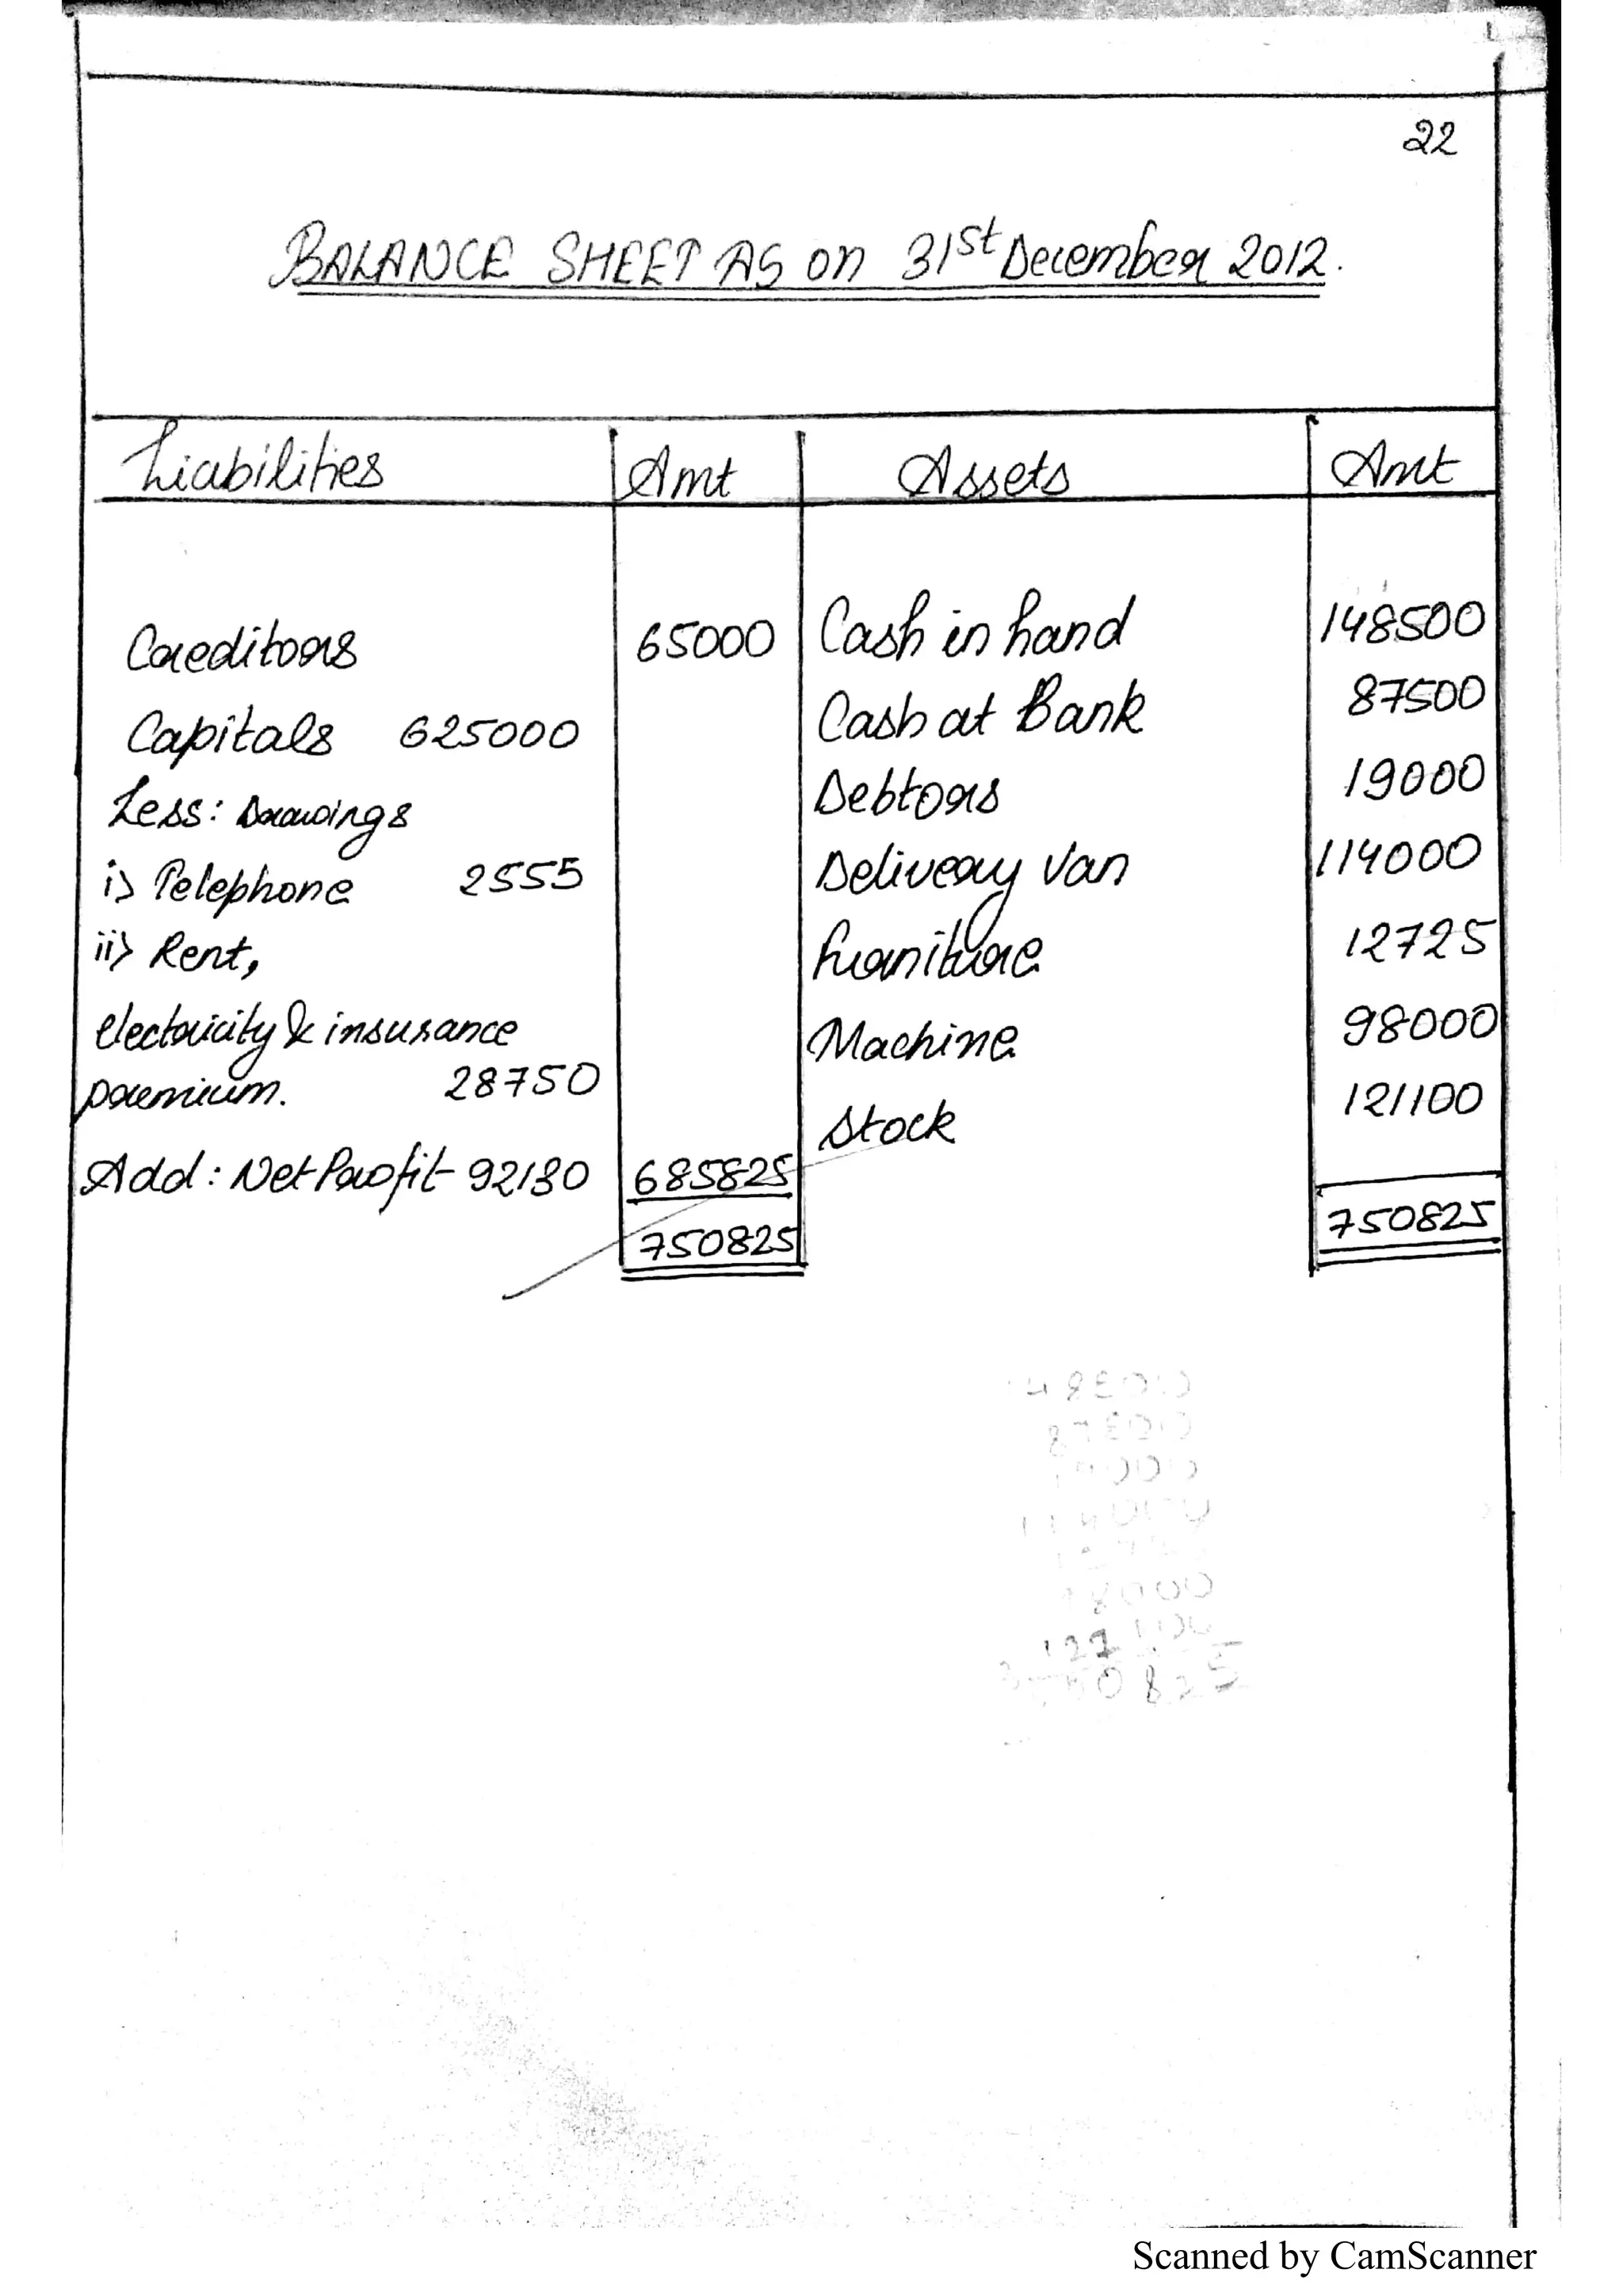 22
BALANCE SHEET AS on 31st December 2012.
Liabilities Amt Assets Amt
Creditors 65000 Cash in hand 148500
Capitals 625000 Cash at Bank 87500
Less: Drawings Debtors 19000
i) Telephone 2555 Delivery Van 114000
ii) Rent, Furniture 12725
electricity & insurance Machine 98000
premium. 28750 Stock 121100
Add: Net Profit 92130 685825
750825 750825
Scanned by CamScanner